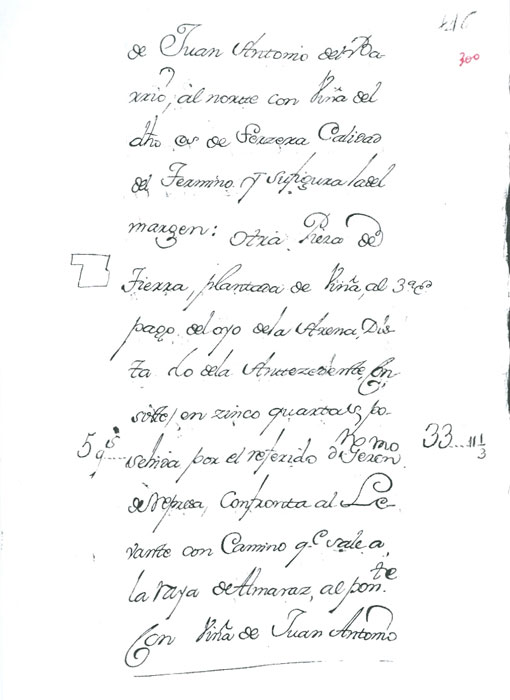 300
de Juan Antonio del Ba-
rrio, al norte con Viña del
dho es de Terzera Calidad
del Termino. Y su figura la del
margen: otra Pieza de
Tierra, plantada de Viña, al
pago del ojo de la Arena, Dis-
ta lo de la Antezedente, Con-
siste en zinco quartas, po-
sehida por el referido
de represa, Confronta al Le-
vante con Camino q.e sale a
la raya de Almaraz, al pon.te
Con Viña de Juan Antonio